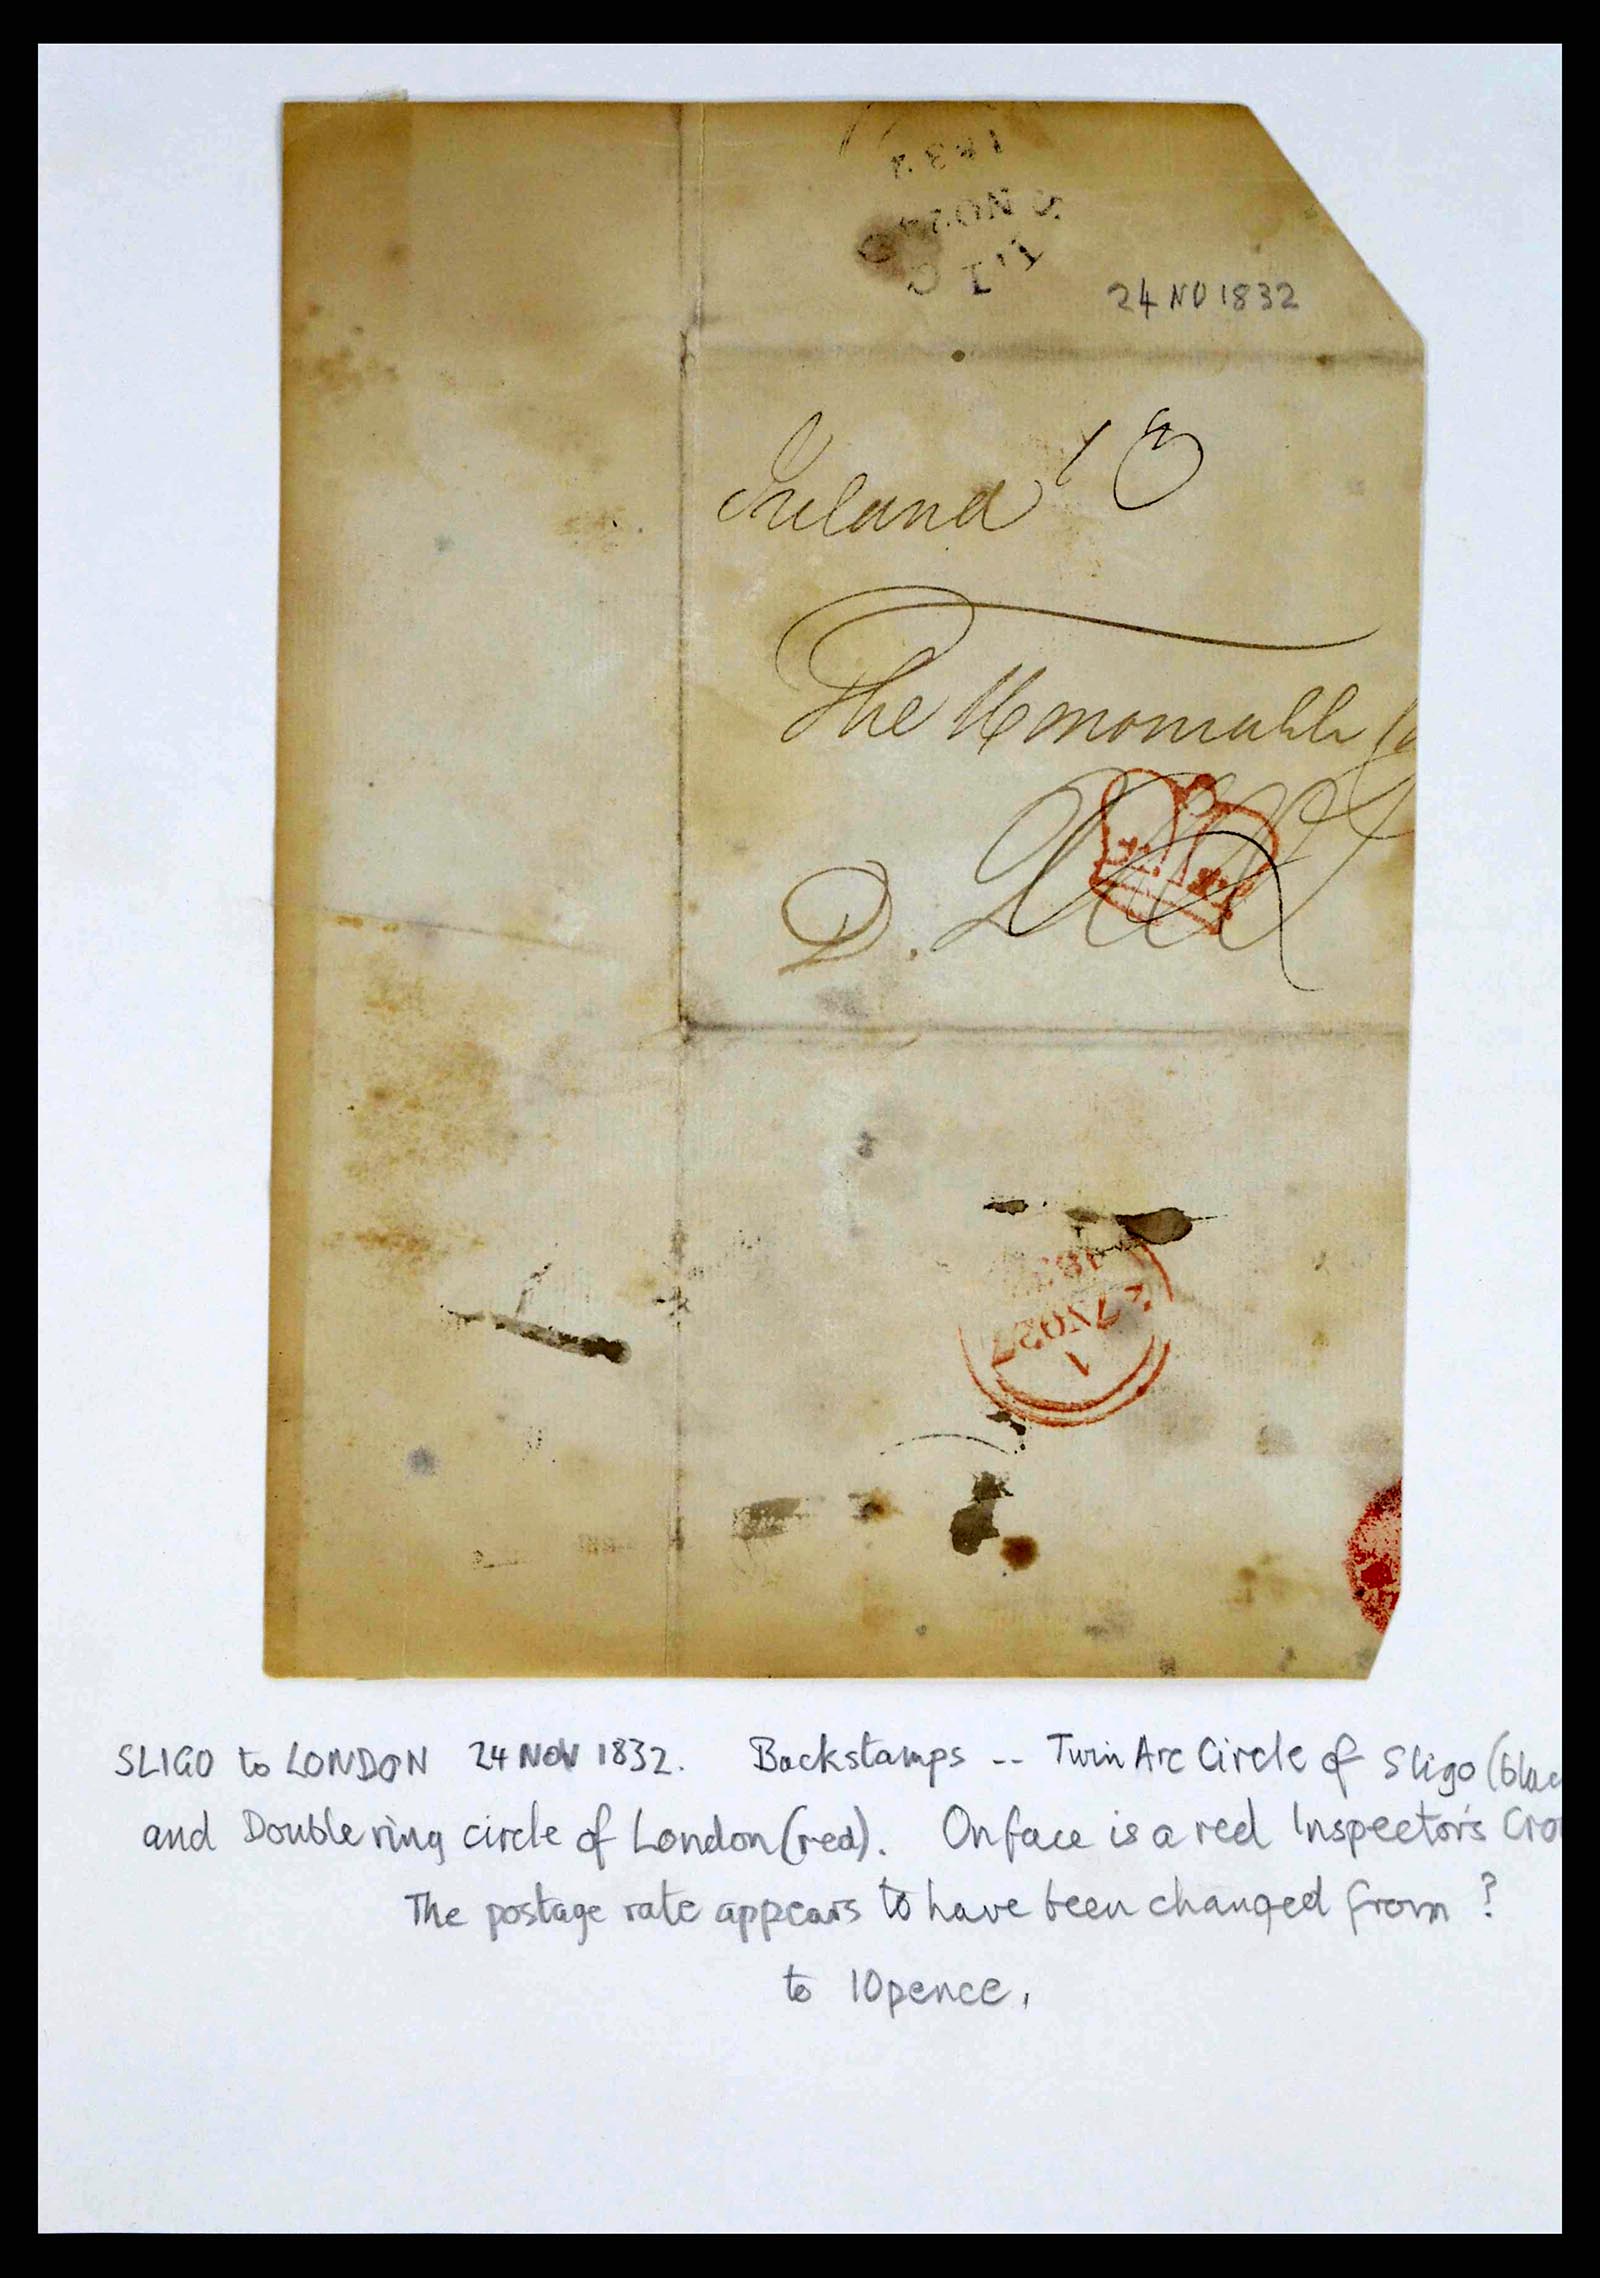 24 NO 1832
Ireland
The Honourable
D.
SLIGO to LONDON 24 NOV 1832. Backstamps -- Twin Arc Circle of Sligo (blac
and Double ring circle of London (red). On face is a red Inspector's Cro
The postage rate appears to have been changed from ?
to 10 pence.